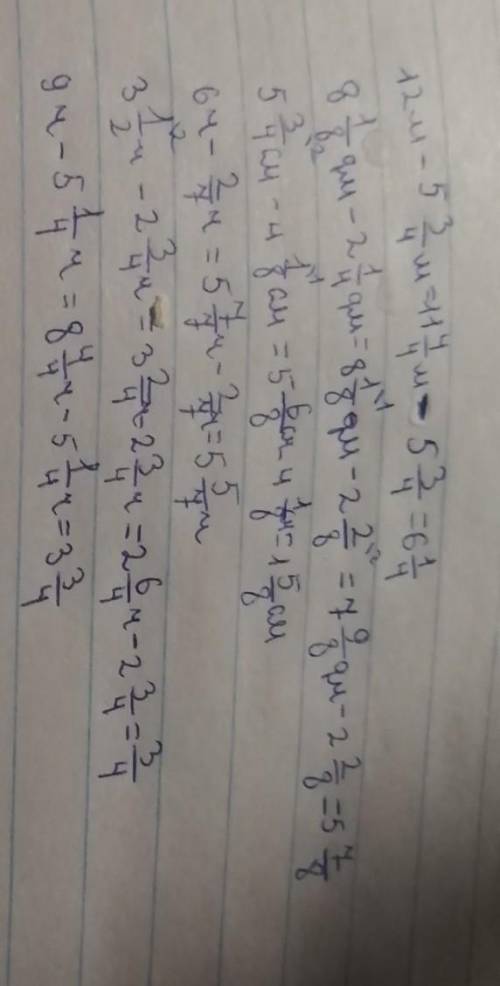 12м - 5 3/4 м = 11 4/4 м - 5 3/4 = 6 1/4
8 1/8 дм - 2 1/4 дм = 8 1/8 дм - 2 2/8 = 7 9/8 дм - 2 2/8 = 5 7/8
5 3/4 см - 4 1/8 см = 5 6/8 см - 4 1/8 = 1 5/8 см
6ч - 2/7 ч = 5 7/7 ч - 2/7 ч = 5 5/7 ч
3 1/2 ч - 2 3/4 ч = 3 2/4 ч - 2 3/4 ч = 2 6/4 ч - 2 3/4 = 3/4
9ч - 5 1/4 ч = 8 4/4 ч - 5 1/4 ч = 3 3/4